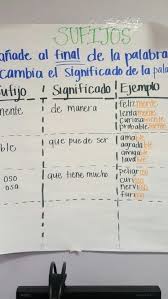 SUFIJOS
añade al final de la palabra
cambia el significado de la pala
ufijo Significado Ejemplo
mente de manera felizmente
lentamente
curiosamente
probablemente
ble que puede ser amable
agradable
amigable
lavable
oso que tiene mucho peligroso
osa curioso
nervioso
furioso